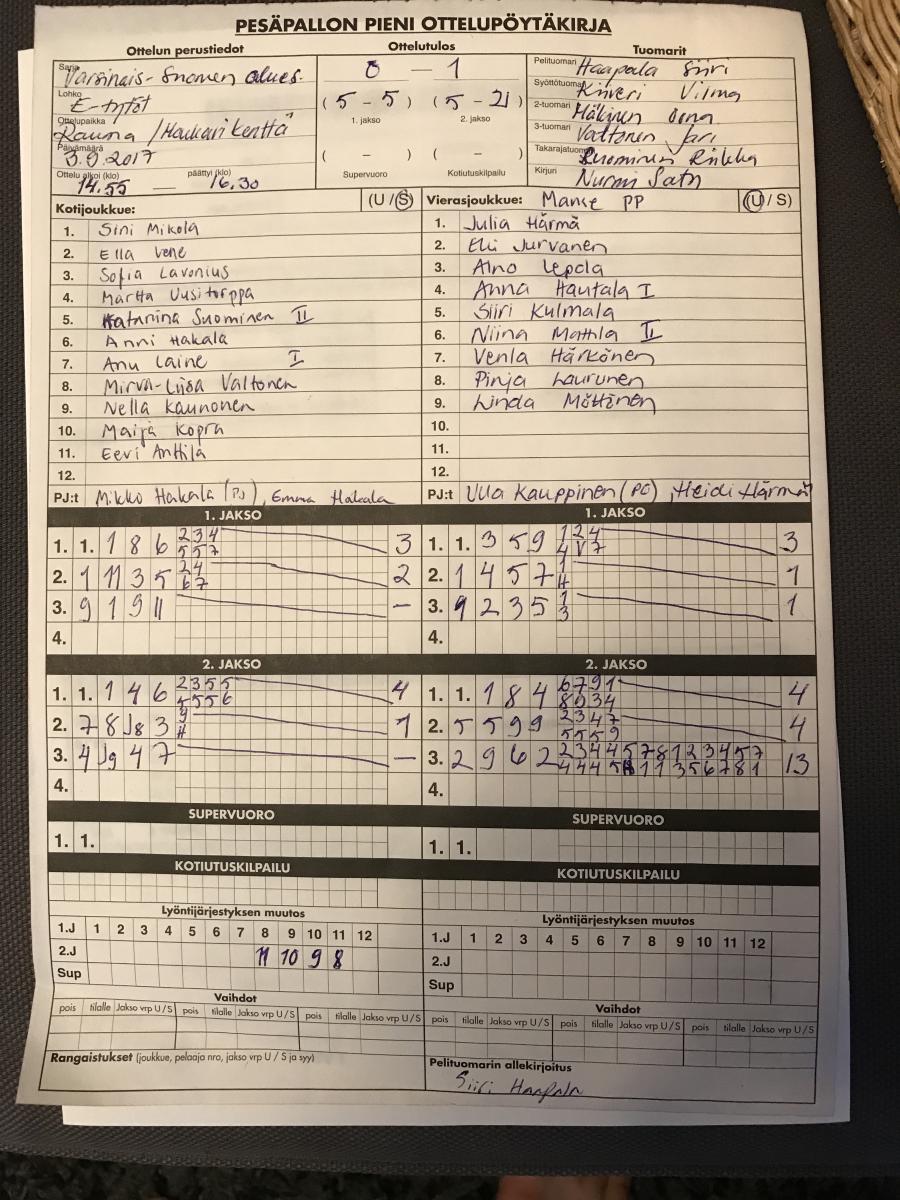 PESÄPALLON PIENI OTTELUPÖYTÄKIRJA
Ottelun perustiedot
Sarja Varsinais-Suomen alues.
Lohko E-tytöt
Ottelupaikka Rauma / Haukarikenttä
Päivämäärä 3.9.2017
Ottelu alkoi (klo) 14.55 — päättyi (klo) 16.30
Ottelutulos
0 — 1
( 5 - 5 ) ( 5 - 21 )
1. jakso 2. jakso
( - ) ( - )
Supervuoro Kotiutuskilpailu
Tuomarit
Pelituomari Haapala Siiri
Syöttötuomari Kiiveri Vilma
2-tuomari Mäkinen Oona
3-tuomari Valtonen Jari
Takarajatuomari Suominen Riikka
Kirjuri Nurmi Satu
Kotijoukkue: (U / S)
1. Sini Mikola
2. Ella Vene
3. Sofia Lavonius
4. Martta Uusitorppa
5. Katariina Suominen II
6. Anni Hakala
7. Anu Laine I
8. Mirva-Liisa Valtonen
9. Nella Kaunonen
10. Maija Kopra
11. Eevi Anttila
12.
PJ:t Mikko Hakala (PJ), Emma Hakala
Vierasjoukkue: Manse PP (U / S)
1. Julia Härmä
2. Elli Jurvanen
3. Aino Lepola
4. Anna Hautala I
5. Siiri Kulmala
6. Niina Mattila II
7. Venla Härkönen
8. Pinja Laurunen
9. Linda Möttönen
10.
11.
12.
PJ:t Ulla Kauppinen (PE), Heidi Härmä
1. JAKSO
1. 1. 1 8 6 2 3 4 3
5 5 7
2. 1 11 3 5 2 4 2
6 7
3. 9 1 9 11 –
4.
1. JAKSO
1. 1. 3 5 9 1 2 4 3
4 V 7
2. 1 4 5 7 1 1
4
3. 9 2 3 5 1 1
3
4.
2. JAKSO
1. 1. 1 4 6 2 3 5 5 4
5 5 5 6
2. 7 8 J8 3 9 1
11
3. 4 J9 4 7 –
4.
2. JAKSO
1. 1. 1 8 4 6 7 9 1 4
8 0 3 4
2. 5 5 9 9 2 3 4 7 4
5 5 5 9
3. 2 9 6 2 2 3 4 4 5 7 8 1 2 3 4 5 7 13
4 4 4 5 1 1 3 5 6 7 8 1
4.
SUPERVUORO
1. 1.
SUPERVUORO
1. 1.
KOTIUTUSKILPAILU
KOTIUTUSKILPAILU
Lyöntijärjestyksen muutos
1.J 1 2 3 4 5 6 7 8 9 10 11 12
2.J 11 10 9 8
Sup
Lyöntijärjestyksen muutos
1.J 1 2 3 4 5 6 7 8 9 10 11 12
2.J
Sup
Vaihdot
pois tilalle Jakso vrp U / S pois tilalle Jakso vrp U / S pois tilalle Jakso vrp U / S
Vaihdot
pois tilalle Jakso vrp U / S pois tilalle Jakso vrp U / S pois tilalle Jakso vrp U / S
Rangaistukset (joukkue, pelaaja nro, jakso vrp U / S ja syy)
Pelituomarin allekirjoitus
Siiri Haapala